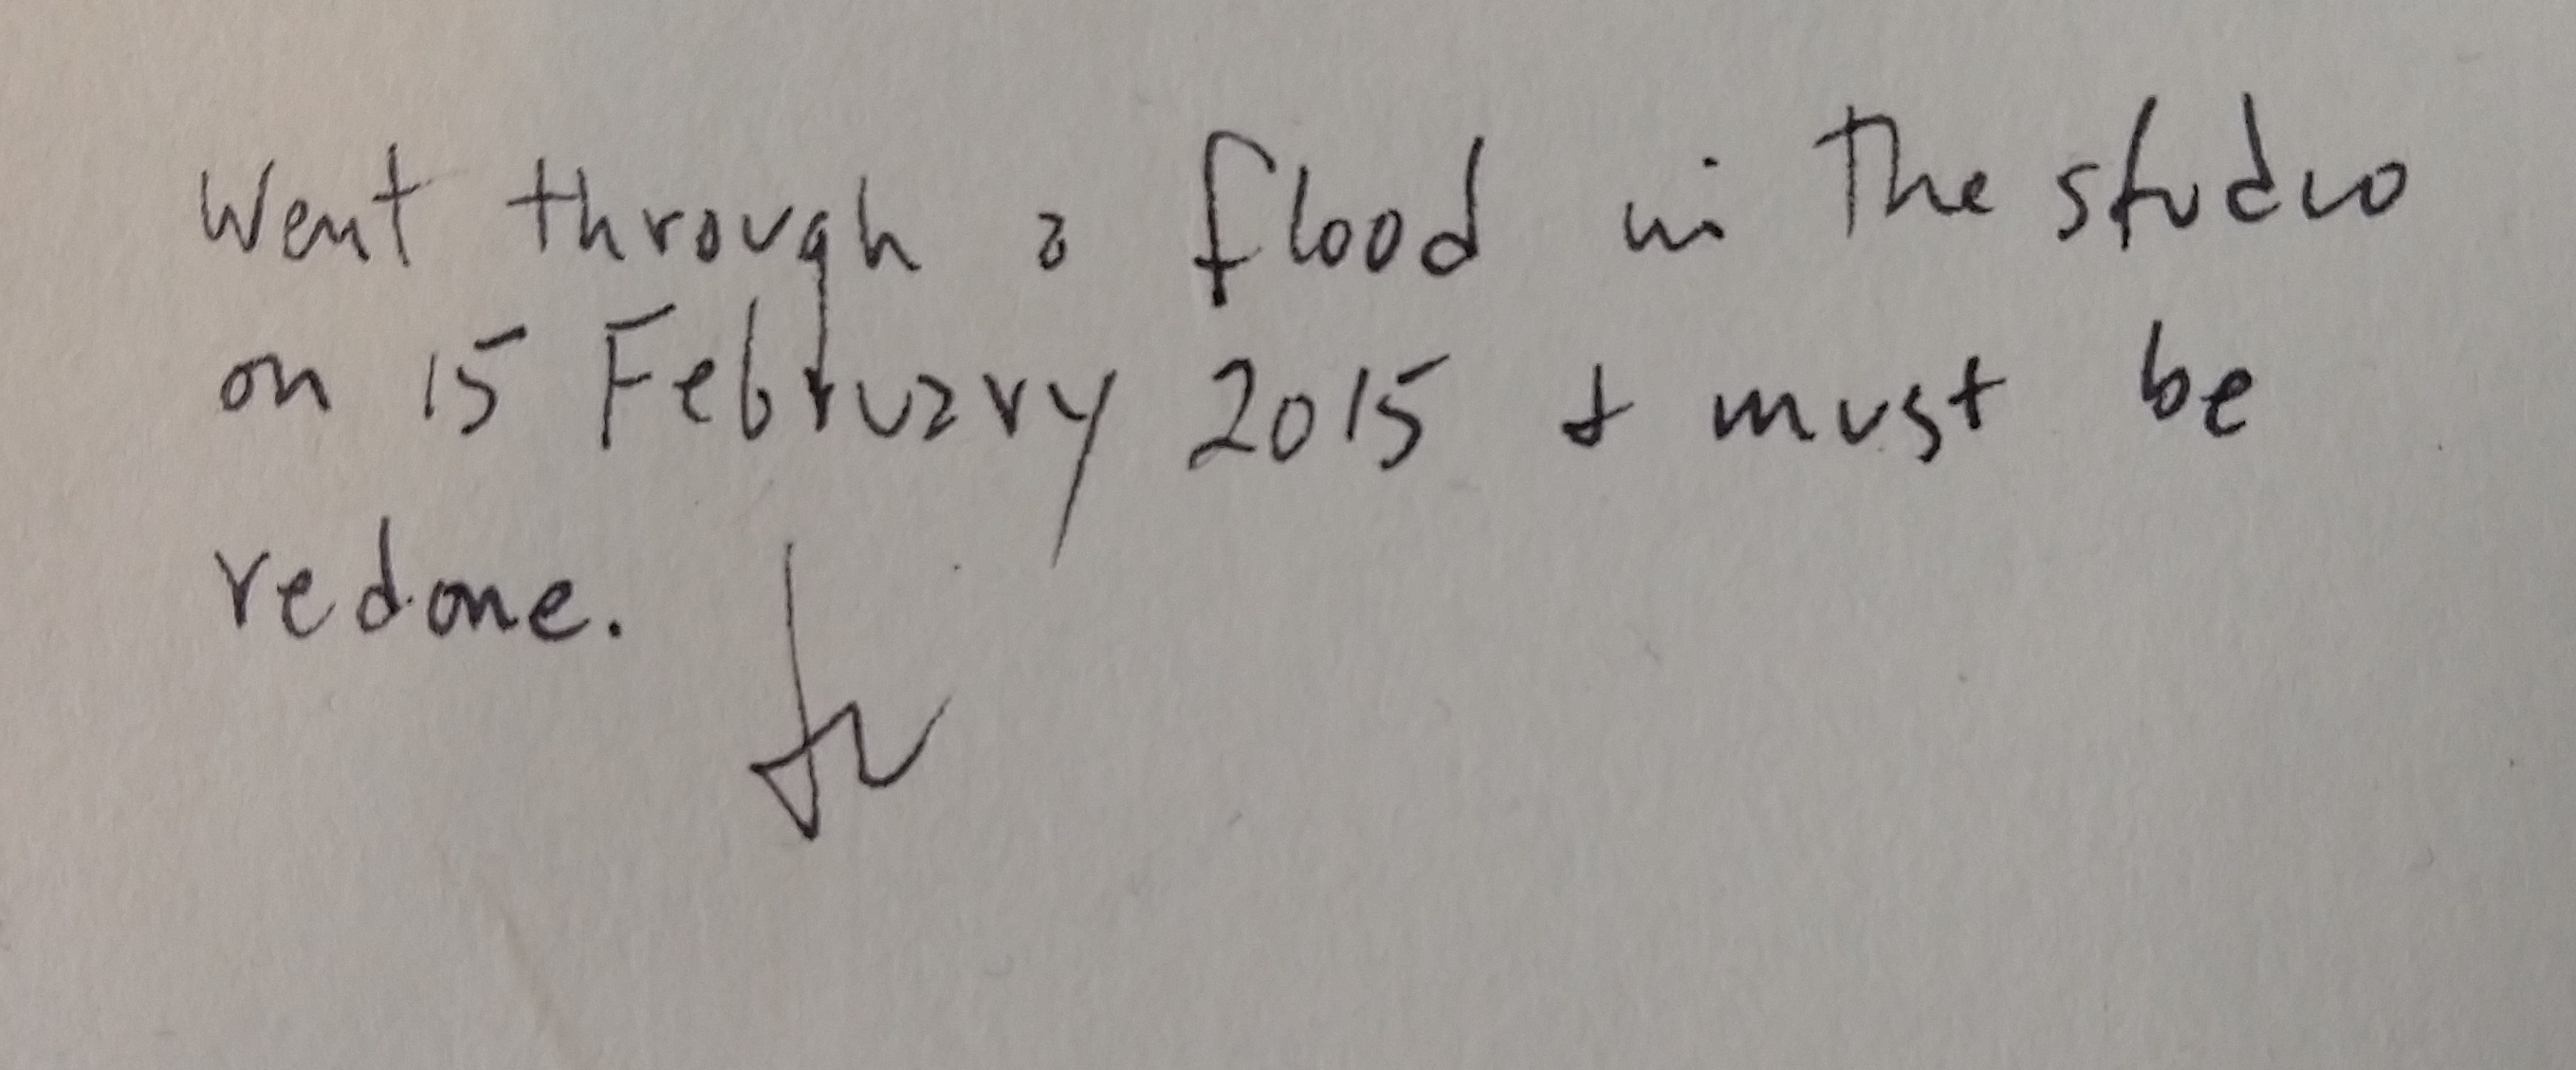 Went through a flood in the studio
on 15 February 2015 + must be
redone.